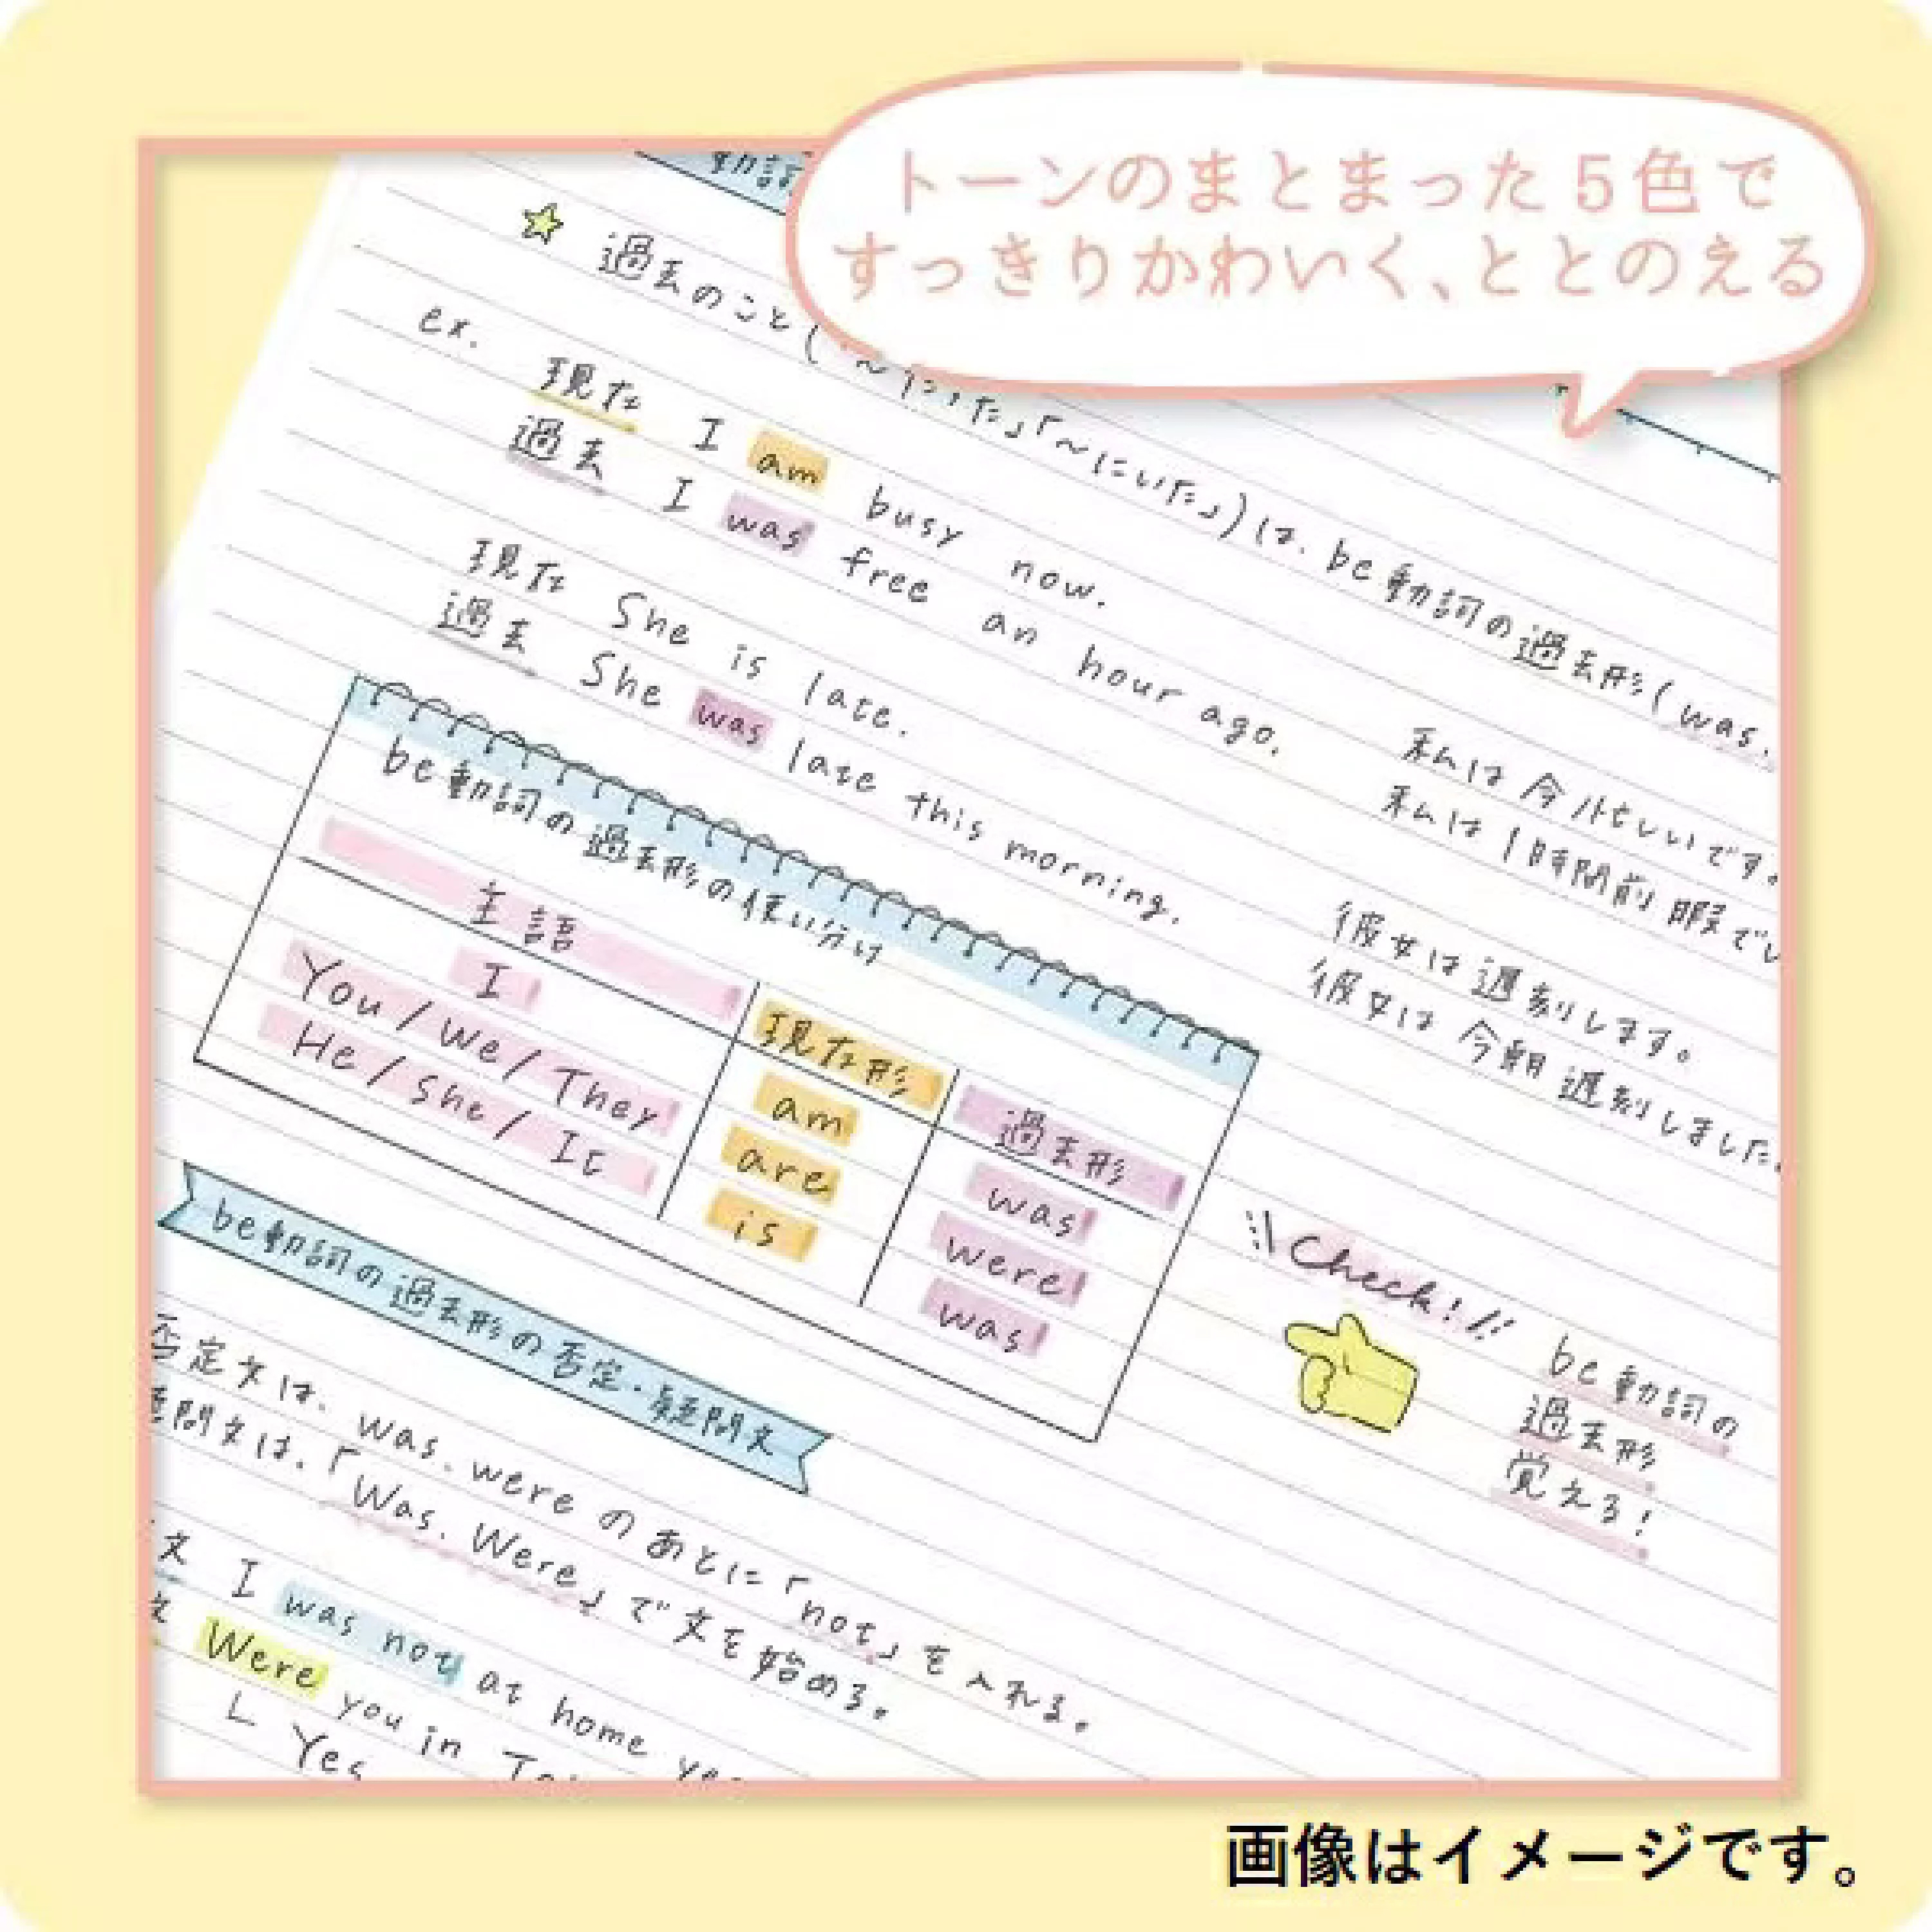 トーンのまとまった5色で
すっきりかわいく、ととのえる
動詞
過去のこと(「~だった」「~にいた」)は、be動詞の過去形(was,
ex. 現在 I am busy now. 私は今忙しいです。
過去 I was free an hour ago. 私は1時間前暇でし
現在 She is late. 彼女は遅刻します。
過去 She was late this morning. 彼女は今朝遅刻しました。
be動詞の過去形の使い分け
主語 現在形 過去形
I am was
You / We / They are were
He / She / It is was
Check!!
be動詞の
過去形
覚えろ!
be動詞の過去形の否定・疑問文
否定文は、was, were のあとに「not」を入れる。
疑問文は、「Was, Were」で文を始める。
文 I was not at home yes
文 Were you in To
Yes
画像はイメージです。